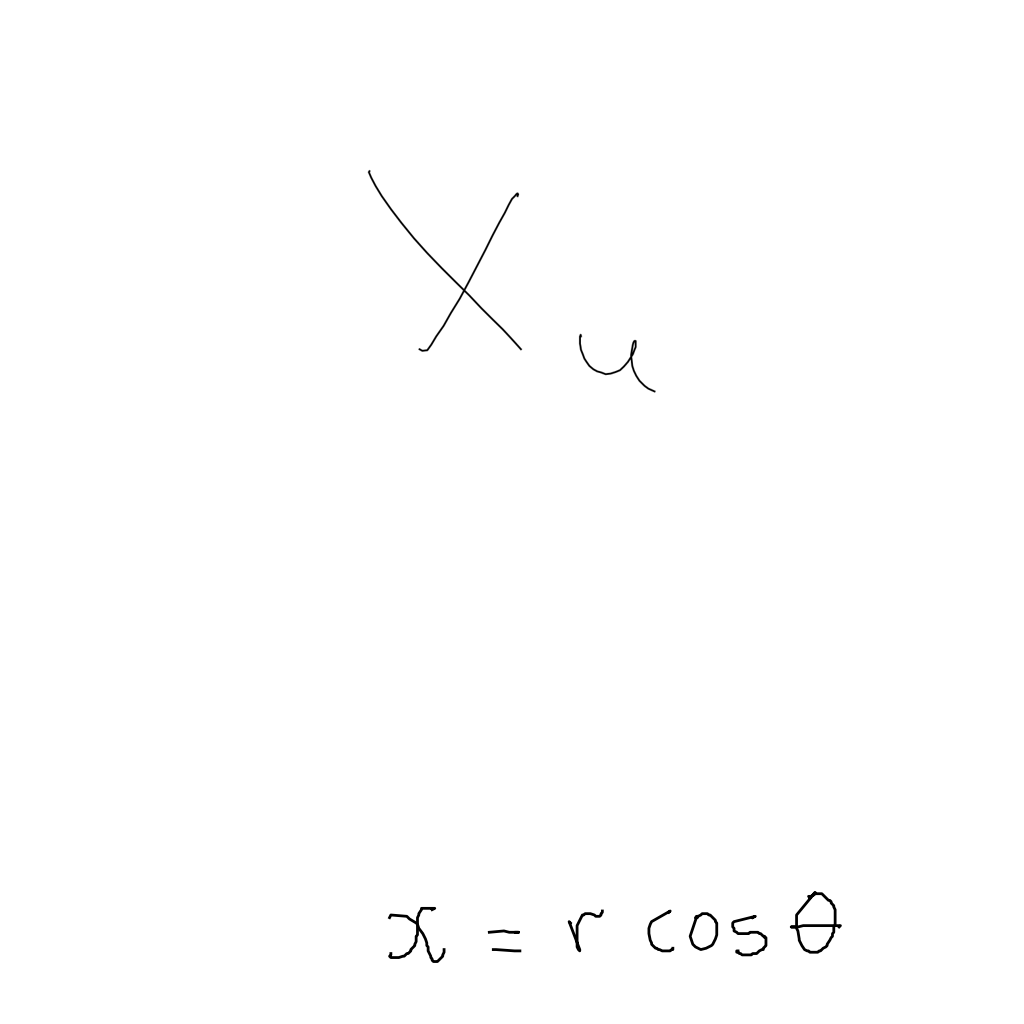 X_u
x = r cos θ